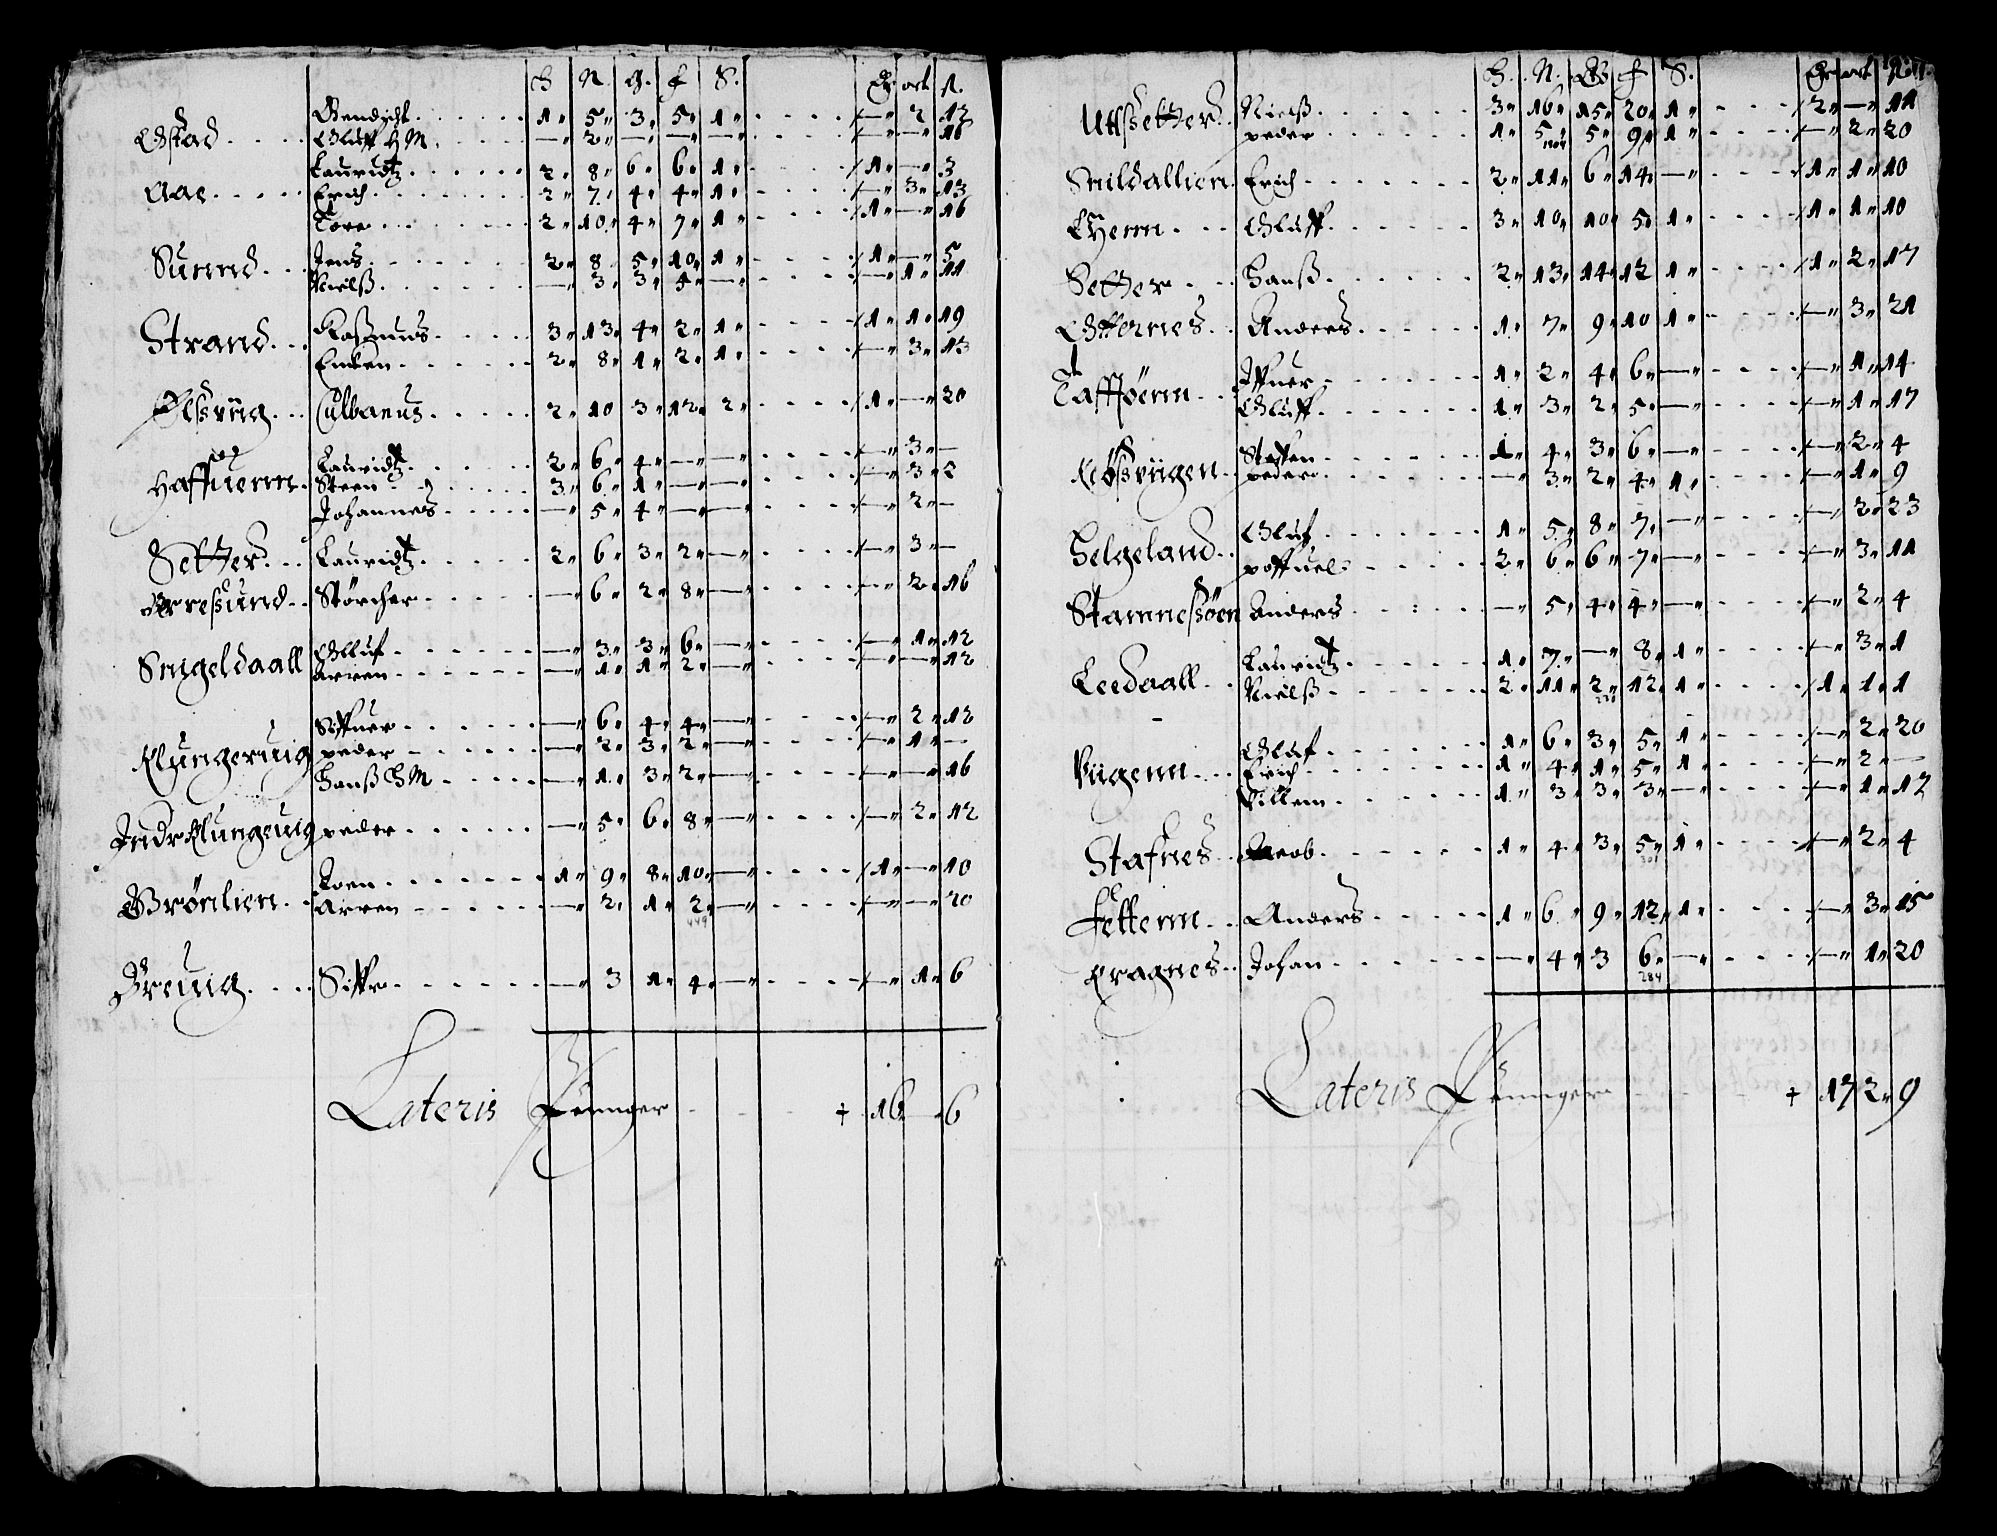 H. N. G. F. S. Dr ort S.
Østad Bendicht 1 5 3 5 1 — 2 12
Oluff H M — 2 — — — — — 16
Aae Lauridtz 2 8 6 6 1 1 — 3
Erich 2 7 4 4 1 — 3 13
Tore 2 10 4 7 1 1 — 16
Sunnd Jens 2 8 5 10 1 1 — 5
Nielß — 3 3 5 — — 1 11
Strand Raßmus 3 13 4 2 1 1 1 19
Encken 2 8 1 2 1 — 3 13
Elßuiig Culbanus 2 10 3 12 2 1 — 20
Haffuenn Lauridtz 2 6 4 — — — 3 —
Steen 3 6 1 — — — 3 2
Johannes — 5 4 — — — 2 —
Setter Lauridtz 2 6 3 2 — — 3 —
Ørresund Störcher — 6 2 8 — — 2 16
Snigeldaall Oluf — 3 3 6 — — 1 12
Arren — 1 1 2 — — — 12
Klungeruig Siffuer — 6 4 4 — — 2 12
peder — 2 3 2 — — 1 —
Hanß H M — 1 3 2 — — — 16
Indr Klungeuig peder — 5 6 8 — — 2 12
Grönlien Roen 1 9 8 10 — 1 — 10
Arren — 2 1 2 — — — 20
449
Breuig Siffr — 3 1 4 — — 1 6
Lateris Penninger + 16 — 6
H. N. G F S. Dr ort S.
Uttßetter Nielß 3 16 15 20 1 2 — 11
peder 1 5 5 9 1 — 2 20
Snildallien Erich 2 11 6 14 — 1 1 10
Oyenn Oluff 3 10 10 5 1 1 1 10
Setter Hanß 2 13 14 12 1 1 2 17
Otternes Anders 1 7 9 10 1 — 3 21
Taffiöenn Iffuer 1 2 4 6 — — 1 14
Oluff 1 3 2 5 — — 1 17
Kiößuiigen Staffen 1 4 3 6 — — 2 4
peder — 3 2 4 1 — 1 9
Helgeland Oluf 1 5 8 7 — — 2 23
poffuel 2 6 6 7 — — 3 11
Stamneßöen Anders — 5 4 4 — — 2 4
Leedaall Lauridtz 1 7 — 8 1 — 3 1
Nielß 2 11 2 12 1 1 1 1
Viigenn Oluf 1 6 3 5 1 — 2 20
Erich 1 4 1 5 1 — 2 —
Villem 1 3 3 3 — — 1 12
Stafnes Jacob 1 4 3 5 1 — 2 4
Fettenn Anders 1 6 9 12 1 — 3 15
Kragnes Johan — 4 3 6 — — 1 20
284
Lateris Penninger + 17 2 9